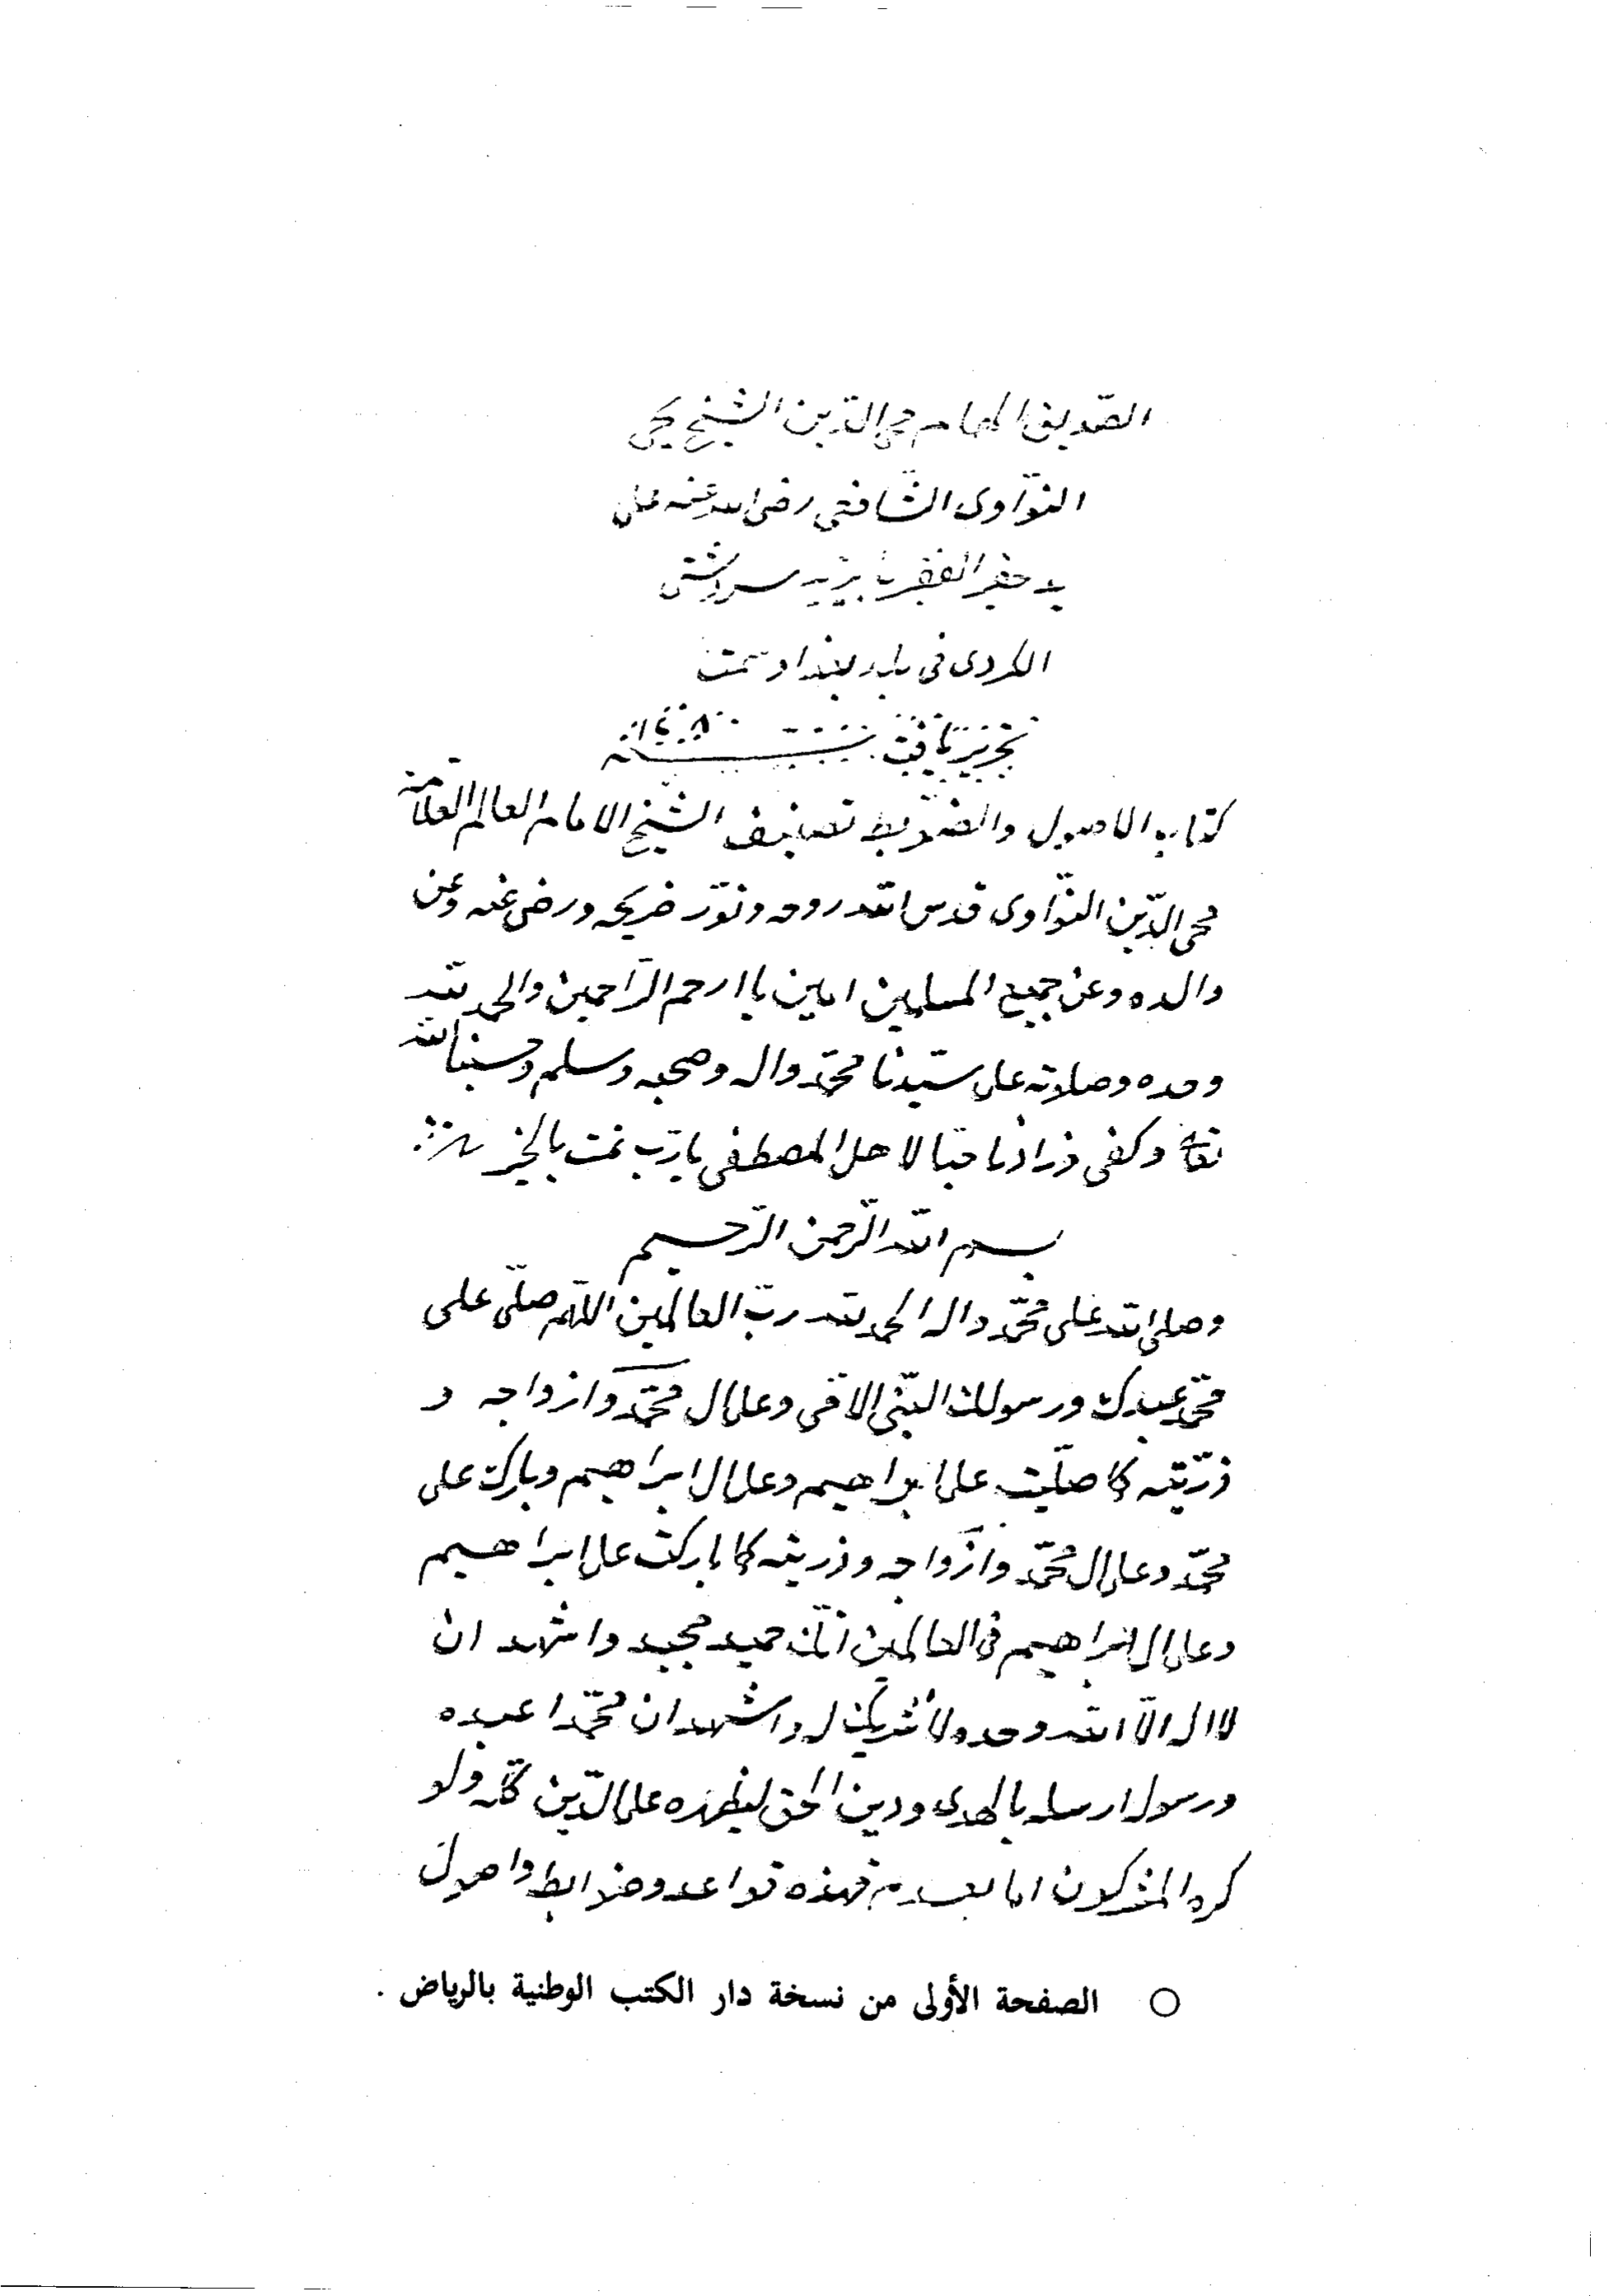 الصّديق الهمام محى الدّين الشيخ يحيى
النوّاوى الشّافعى رضى الله عنه على
يد حقير الفقير بايزيد سردشتى
الكردى فى بلد بغداد تمت
تحريرًا فى سنة
كتاب الاصول والضوّابط تصنيف الشّيخ الامام العالم العلاّمة
محى الدّين النوّاوى قدس الله روحه ونوّر ضريحه ورضى عنه وعن
والده وعن جميع المسلمين امين يا ارحم الرّاحمين والحمد لله
وحده وصلاته على سيّدنا محمّد واله وصحبه وسلم وحسبنا الله
وكفى وزادنا حبّا لاهل المصطفى يا ربّ تمت بالخير
بسم الله الرّحمن الرّحيم
وصلى الله على محمّد واله الحمد لله ربّ العالمين اللهّم صلّى على
محمّد عبدك ورسولك النبّى الامّى وعلى ال محمّد وازواجه و
ذرّيّته كما صلّيت على ابراهيم وعلى ال ابراهيم وبارك على
محمّد وعلى ال محمّد وازواجه وذريته كما باركت على ابراهيم
وعلى ال ابراهيم فى العالمين انّك حميد مجيد واشهد ان
لا اله الاّ الله وحده ولا شريك له واشهد ان محمّدا عبده
ورسوله ارسله بالهدى ودين الحق ليظهره على الدّين كلّه ولو
كره المشركون اما بعد فهذه قواعد وضوابط واصول
○ الصفحة الأولى من نسخة دار الكتب الوطنية بالرياض .